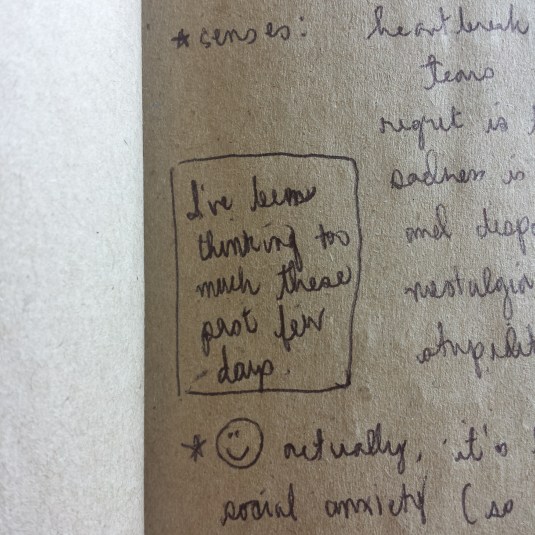 *senses: heartbreak
tears
regret is
sadness is
and
nostalgia
I've been
thinking too
much these
past few
days.
* actually, it's
social anxiety (so